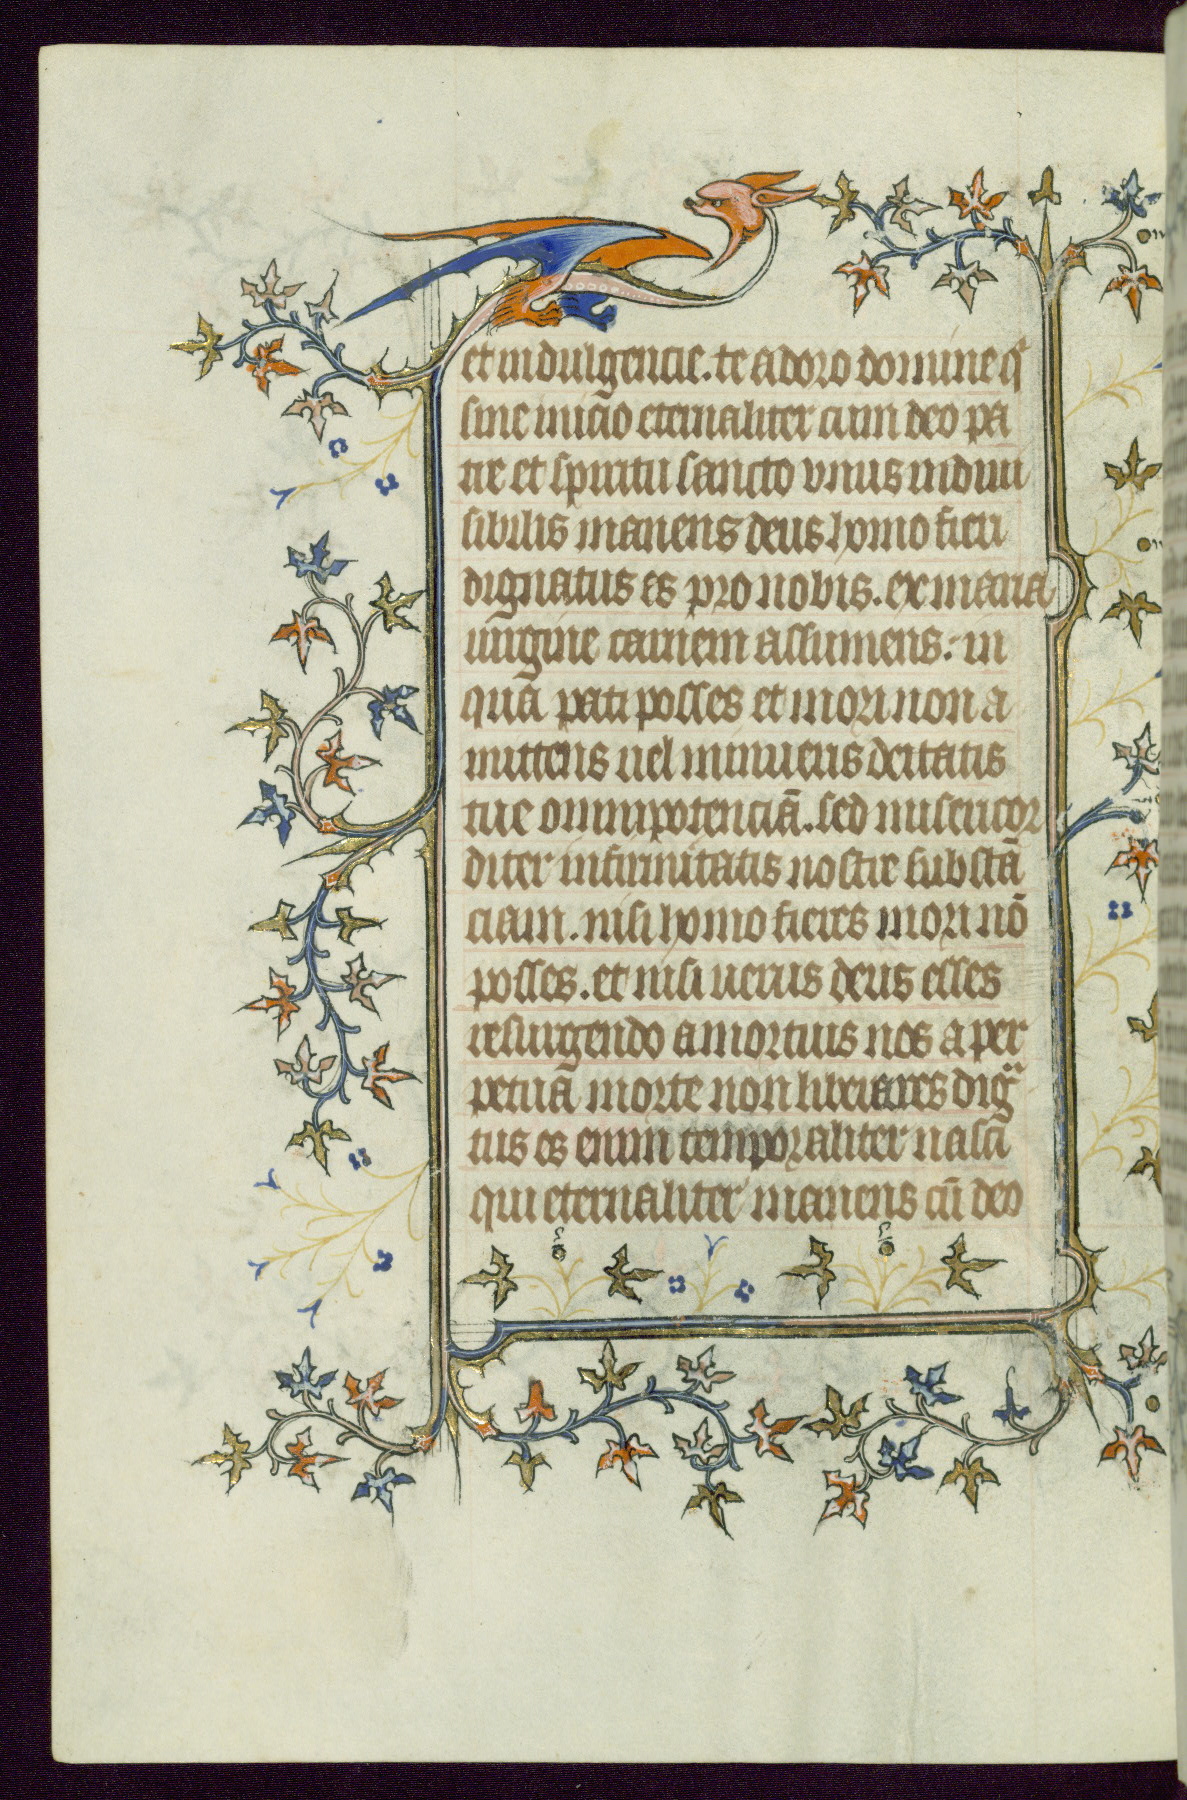 et indulgencie. te adoro domine qͥ
sine inicio eternaliter cum deo pa
tre et spiritu sancto unus indiui
sibilis manens deus homo fieri
dignatus es pro nobis. ex maria
uirgine carnem assumens: in
qua pati posses et mori non a
mittens uel minuens deitatis
tue omnipotenciā. sed misericor
diter infirmitatis nostre substā
ciam. nisi homo fieres mori nō
posses. et nisi uerus deus esses
resurgendo a mortuis nos a per
petua morte non liberares digͣ
tus es enim temporaliter nasci
qui eternaliter manens cū deo